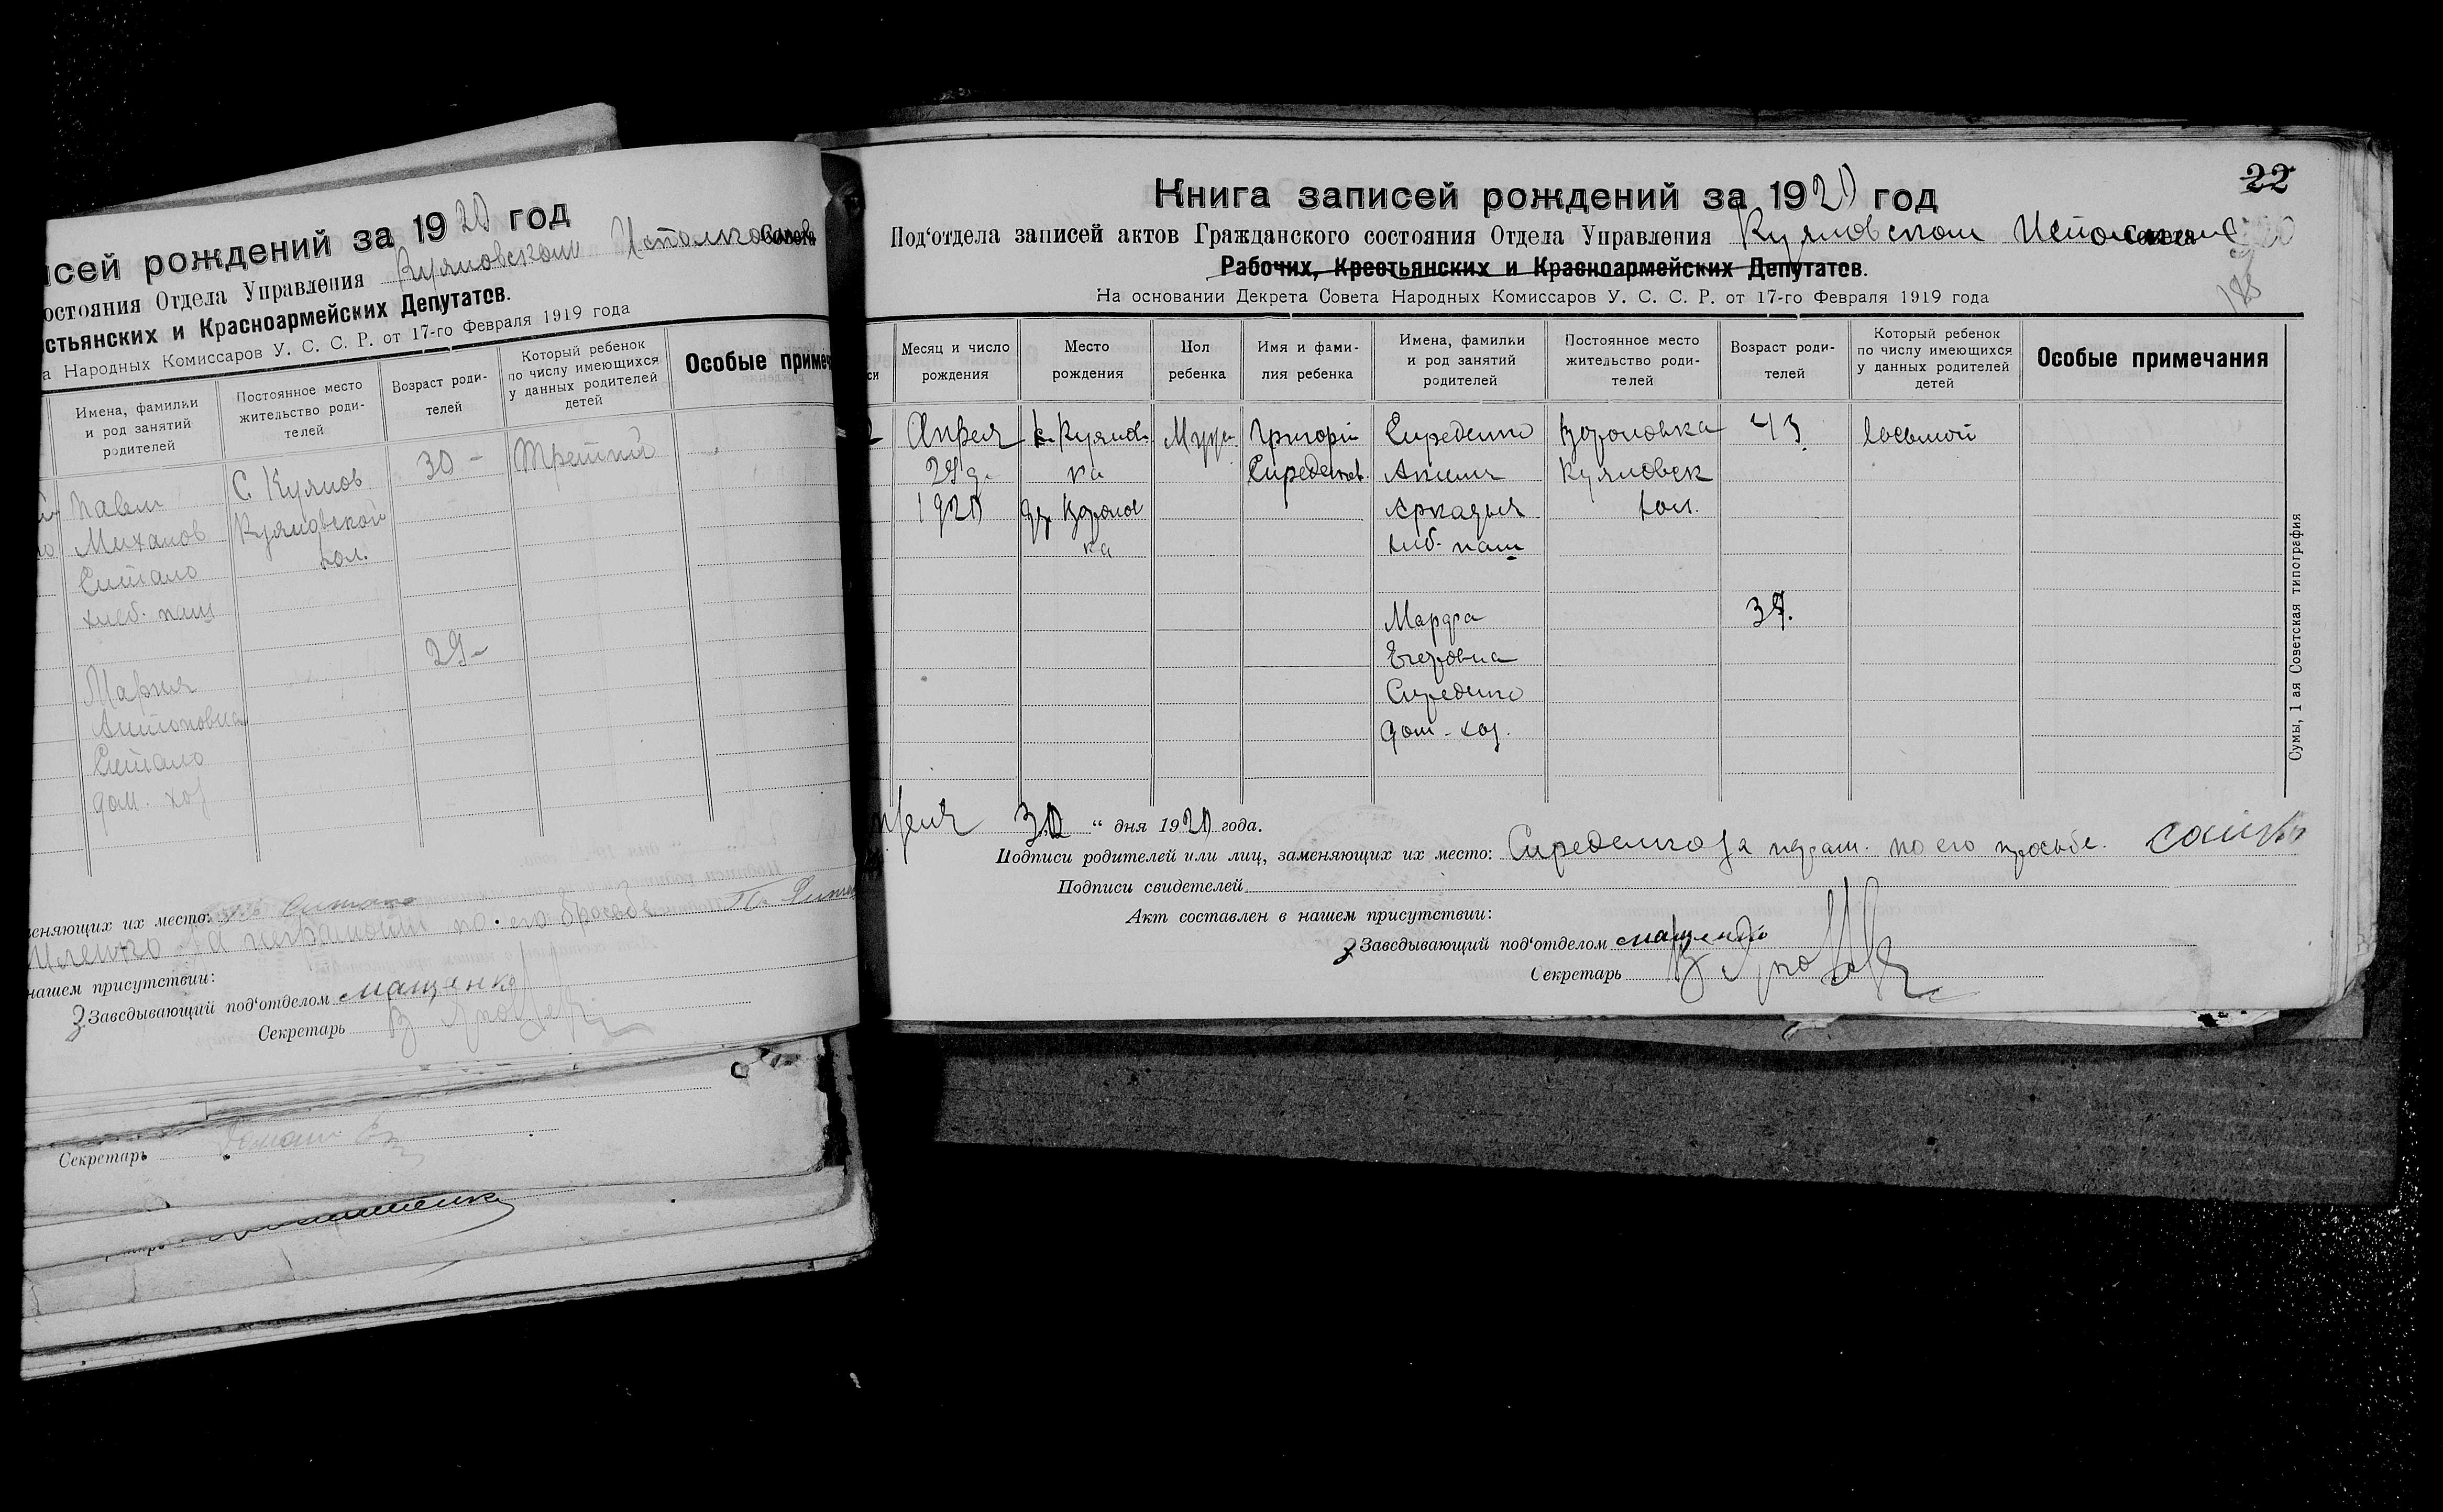 исей рождений за 1920 год
остояния Отдела Управления Куяновском Исполкоме Совета
стьянских и Красноармейских Депутатов.
а Народных Комиссаров У. С. С. Р. от 17-го Февраля 1919 года
Имена, фамилии
и род занятий
родителей
Постоянное место
жительство роди-
телей
Возраст роди-
телей
Который ребенок
по числу имеющихся
у данных родителей
детей
Особые примеч
Павел
Миханов
хлеб. паш
С. Куянов
Куяновской
вол.
30 -
Третий
29 -
Мария
Антоновна
дом. хоз
еняющих их место:
за неграмотн по его просьбе
нашем присутствии:
Заведывающий под‘отделом Мащенко
Секретарь
Секретарь
22
188
Книга записей рождений за 1920 год
Под‘отдела записей актов Гражданского состояния Отдела Управления Куяновском Исполкоме Совета
Рабочих, Крестьянских и Красноармейских Депутатов.
На основании Декрета Совета Народных Комиссаров У. С. С. Р. от 17-го Февраля 1919 года
си
Месяц и число
рождения
Место
рождения
Пол
ребенка
Имя и фами-
лия ребенка
Имена, фамилии
и род занятий
родителей
Постоянное место
жительство роди-
телей
Возраст роди-
телей
Который ребенок
по числу имеющихся
у данных родителей
детей
Особые примечания
Апреля
29 д.
1920
с. Куянов
ка
Муж.
Григорій
Середенко
Аркадия
хлеб. паш
Куяновск
вол.
43
восьмой
Марфа
Егоровна
Середенко
дом - хоз.
39.
преля 30 “ дня 1920 года.
Подписи родителей или лиц, заменяющих их место: Середенко за неграм. по его просьбе.
Подписи свидетелей
Акт составлен в нашем присутствии:
Заведывающий под‘отделом Мащенко
Секретарь
Сумы, 1 ая Советская типография